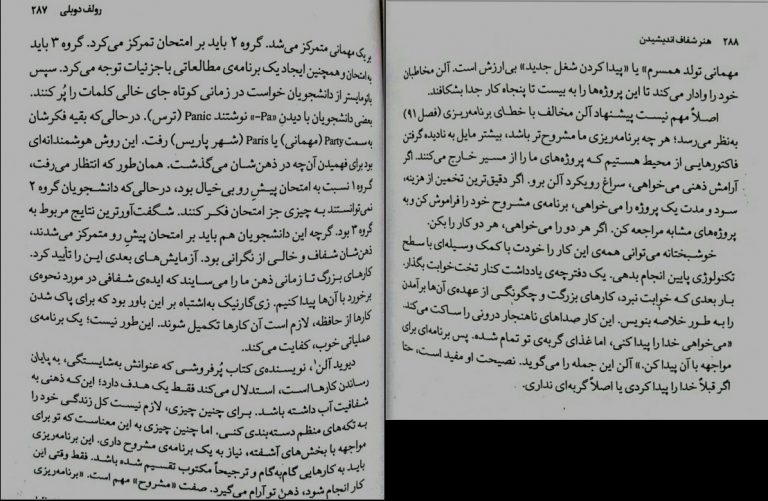 رولف دوبلی   ۲۸۷
بر یک مهمانی متمرکز می‌شد. گروه ۲ باید بر امتحان تمرکز می‌کرد. گروه ۳ باید
به امتحان و همچنین ایجاد یک برنامه‌ی مطالعاتی با جزئیات توجه می‌کرد. سپس
بائومایستر از دانشجویان خواست در زمانی کوتاه جای خالی کلمات را پُر کنند.
بعضی دانشجویان با دیدن «Pa-» نوشتند Panic (ترس). درحالی‌که بقیه فکرشان
به سمت Party (مهمانی) یا Paris (شهر پاریس) رفت. این روش هوشمندانه‌ای
بود برای فهمیدن آن‌چه در ذهن‌شان می‌گذشت. همان‌طور که انتظار می‌رفت،
گروه ۱ نسبت به امتحان پیشِ رو بی‌خیال بود، درحالی‌که دانشجویان گروه ۲
نمی‌توانستند به چیزی جز امتحان فکر کنند. شگفت‌آورترین نتایج مربوط به
گروه ۳ بود. گرچه این دانشجویان هم باید بر امتحان پیشِ رو متمرکز می‌شدند،
ذهن‌شان شفاف و خالی از نگرانی بود. آزمایش‌های بعدی این را تأیید کرد.
کارهای بزرگ تا زمانی ذهن ما را می‌سایند که ایده‌ی شفافی در مورد نحوه‌ی
برخورد با آن‌ها پیدا کنیم. زی‌گارنیک به‌اشتباه بر این باور بود که برای پاک شدن
کارها از حافظه، لازم است آن کارها تکمیل شوند. این‌طور نیست؛ یک برنامه‌ی
عملیاتی خوب، کفایت می‌کند.
دیوید آلن۱، نویسنده‌ی کتاب پُرفروشی که عنوانش به‌شایستگی، به پایان
رساندن کارها است، استدلال می‌کند فقط یک هدف دارد؛ این‌که ذهنی به
شفافیت آب داشته باشد. برای چنین چیزی، لازم نیست کل زندگی خود را
به تکه‌های منظم دسته‌بندی کنی. اما چنین چیزی به این معناست که تو برای
مواجهه با بخش‌های آشفته، نیاز به یک برنامه‌ی مشروح داری. این برنامه‌ریزی
باید به کارهایی گام‌به‌گام و ترجیحاً مکتوب تقسیم شده باشد. فقط وقتی این
کار انجام شود، ذهن تو آرام می‌گیرد. صفت «مشروح» مهم است. «برنامه‌ریزی
۲۸۸   هنر شفاف اندیشیدن
مهمانی تولد همسرم» یا «پیدا کردن شغل جدید» بی‌ارزش است. آلن مخاطبان
خود را وادار می‌کند تا این پروژه‌ها را به بیست تا پنجاه کار جدا بشکافند.
اصلاً مهم نیست پیشنهاد آلن مخالف با خطای برنامه‌ریزی (فصل ۹۱)
به‌نظر می‌رسد؛ هر چه برنامه‌ریزی ما مشروح‌تر باشد، بیشتر مایل به نادیده گرفتن
فاکتورهایی از محیط هستیم که پروژه‌های ما را از مسیر خارج می‌کنند. اگر
آرامش ذهنی می‌خواهی، سراغ رویکرد آلن برو. اگر دقیق‌ترین تخمین از هزینه،
سود و مدت یک پروژه را می‌خواهی، برنامه‌ی مشروح خود را فراموش کن و به
پروژه‌های مشابه مراجعه کن. اگر هر دو را می‌خواهی، هر دو کار را بکن.
خوشبختانه می‌توانی همه‌ی این کار را خودت با کمک وسیله‌ای با سطح
تکنولوژی پایین انجام بدهی. یک دفترچه‌ی یادداشت کنار تخت‌خوابت بگذار.
بار بعدی که خوابت نبرد، کارهای بزرگت و چگونگی از عهده‌ی آن‌ها برآمدن
را به طور خلاصه بنویس. این کار صداهای ناهنجار درونی را ساکت می‌کند.
«می‌خواهی خدا را پیدا کنی، اما غذای گربه‌ی تو تمام شده. پس برنامه‌ای برای
مواجهه با آن پیدا کن.» آلن این جمله را می‌گوید. نصیحت او مفید است، حتا
اگر قبلاً خدا را پیدا کردی یا اصلاً گربه‌ای نداری.